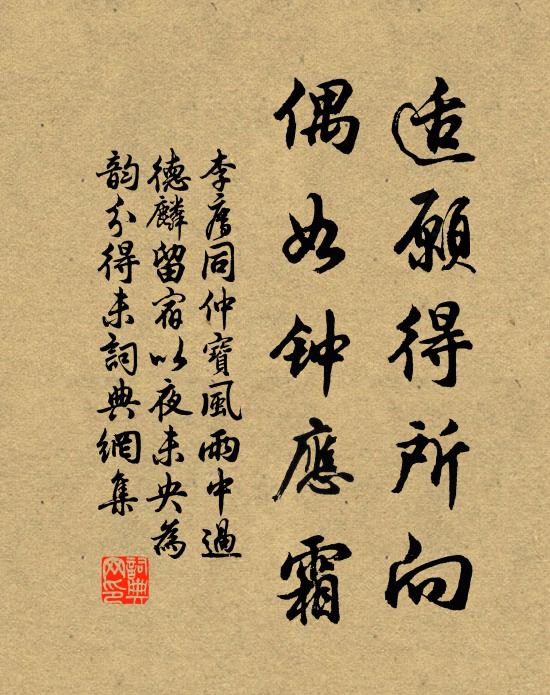 适願得所向
偶如钟應霜
李廌同仲寶風雨中過
德麟留宿以夜未央為
韵分得未詞典網集
詞典网印